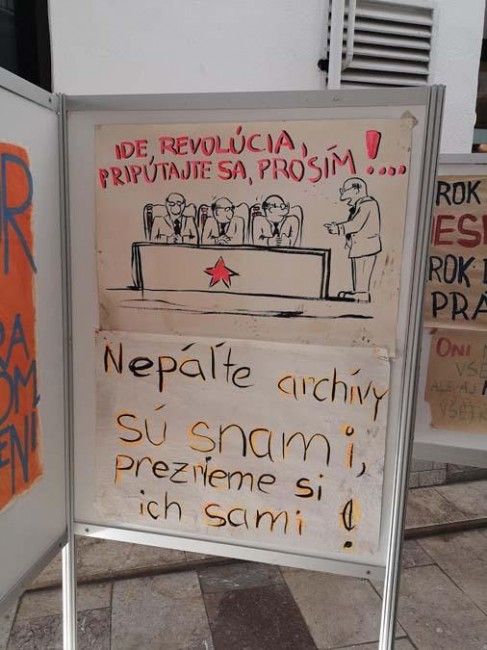 IDE REVOLÚCIA,
PRIPÚTAJTE SA, PROSÍM!....
Nepáľte archívy
sú snami,
prezrieme si
ich sami!
ROK
ROK
PRÁ
ONI
VŠE
ALE AJ
VŠETK